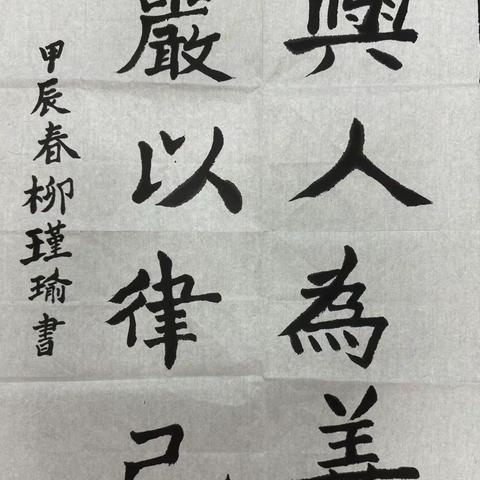 與人為善
嚴以律己
甲辰春柳瑾瑜書